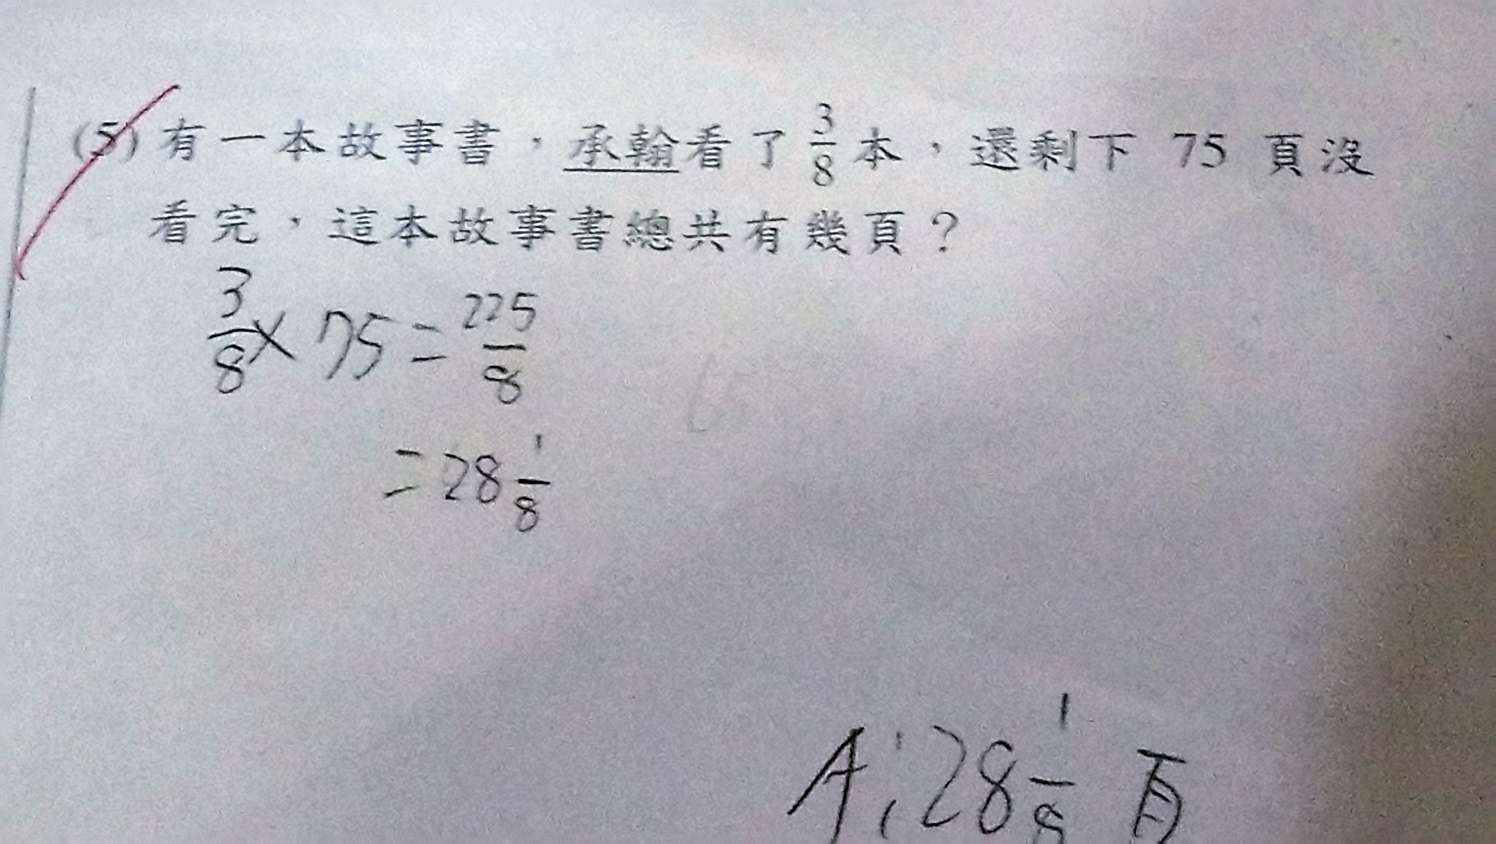 (5) 有一本故事書，承翰看了 3/8 本，還剩下 75 頁沒
看完，這本故事書總共有幾頁？
3/8 × 75 = 225/8
= 28 1/8
A: 28 1/8 頁